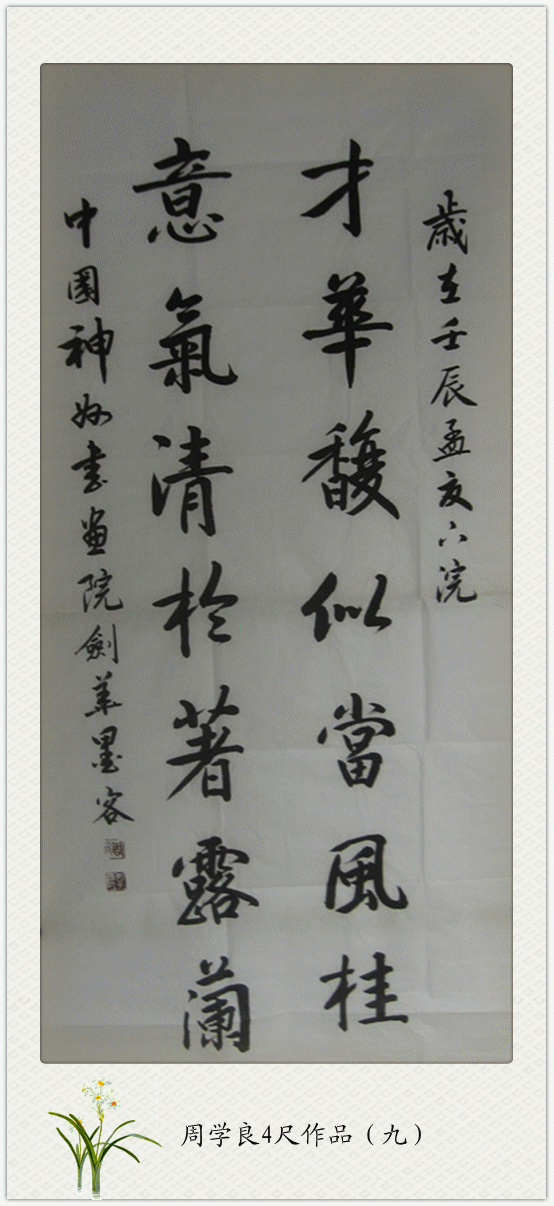 歲在壬辰孟夏下浣
才華馥似當風桂
意氣清於著露蘭
中國神州書画院劍華墨客
周学良4尺作品（九）